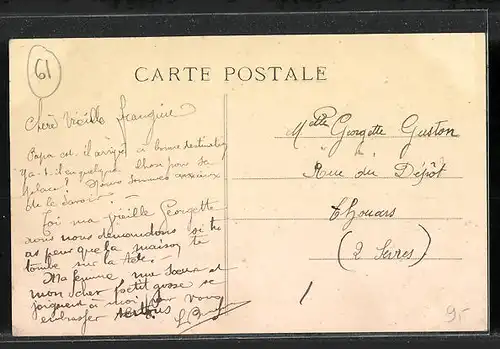 61
CARTE POSTALE
Chère Vieille frangine
Papa est-il arrivé à bonne destination
Ya-t-il quelque chose pour sa
place? Nous sommes anxieux
de le savoir.
Toi ma vieille Georgette
nous nous demandons si tu
as peur que la maison te
tombe sur la tête.
Ma femme, ma soeur et
mon cher petit gosse se
joignent à moi pour vous
embrasser
Melle Georgette Guston
Rue du Dépôt
Thouars
(2 Sèvres)
9.-